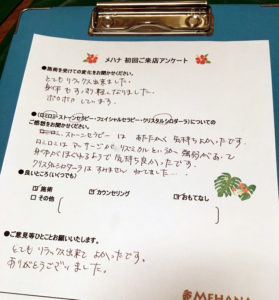 メハナ 初回ご来店アンケート
●施術を受けての変化をお聞かせください。
とてもリラックス出来ました。
身体もすっきり軽くなりました。
ポカポカしています。
●(ロミロミ・ストーンセラピー・フェイシャルセラピー・クリスタルシロダーラ)についての
ご感想をお聞かせください。
ストーンセラピーは あたたかく 気持ちよかったです。
ロミロミは マッサージが リズミカルというか 強弱があって
身体がほぐれるようで 気持ち良かったです。
クリスタルシロダーラは すみません ねてました…
●良いところ(いくつでも)
☑施術
☑カウンセリング
☑おもてなし
□その他
●ご意見等ひとことお願いいたします。
とてもリラックス出来て よかったです。
ありがとうございました。
MEHANA